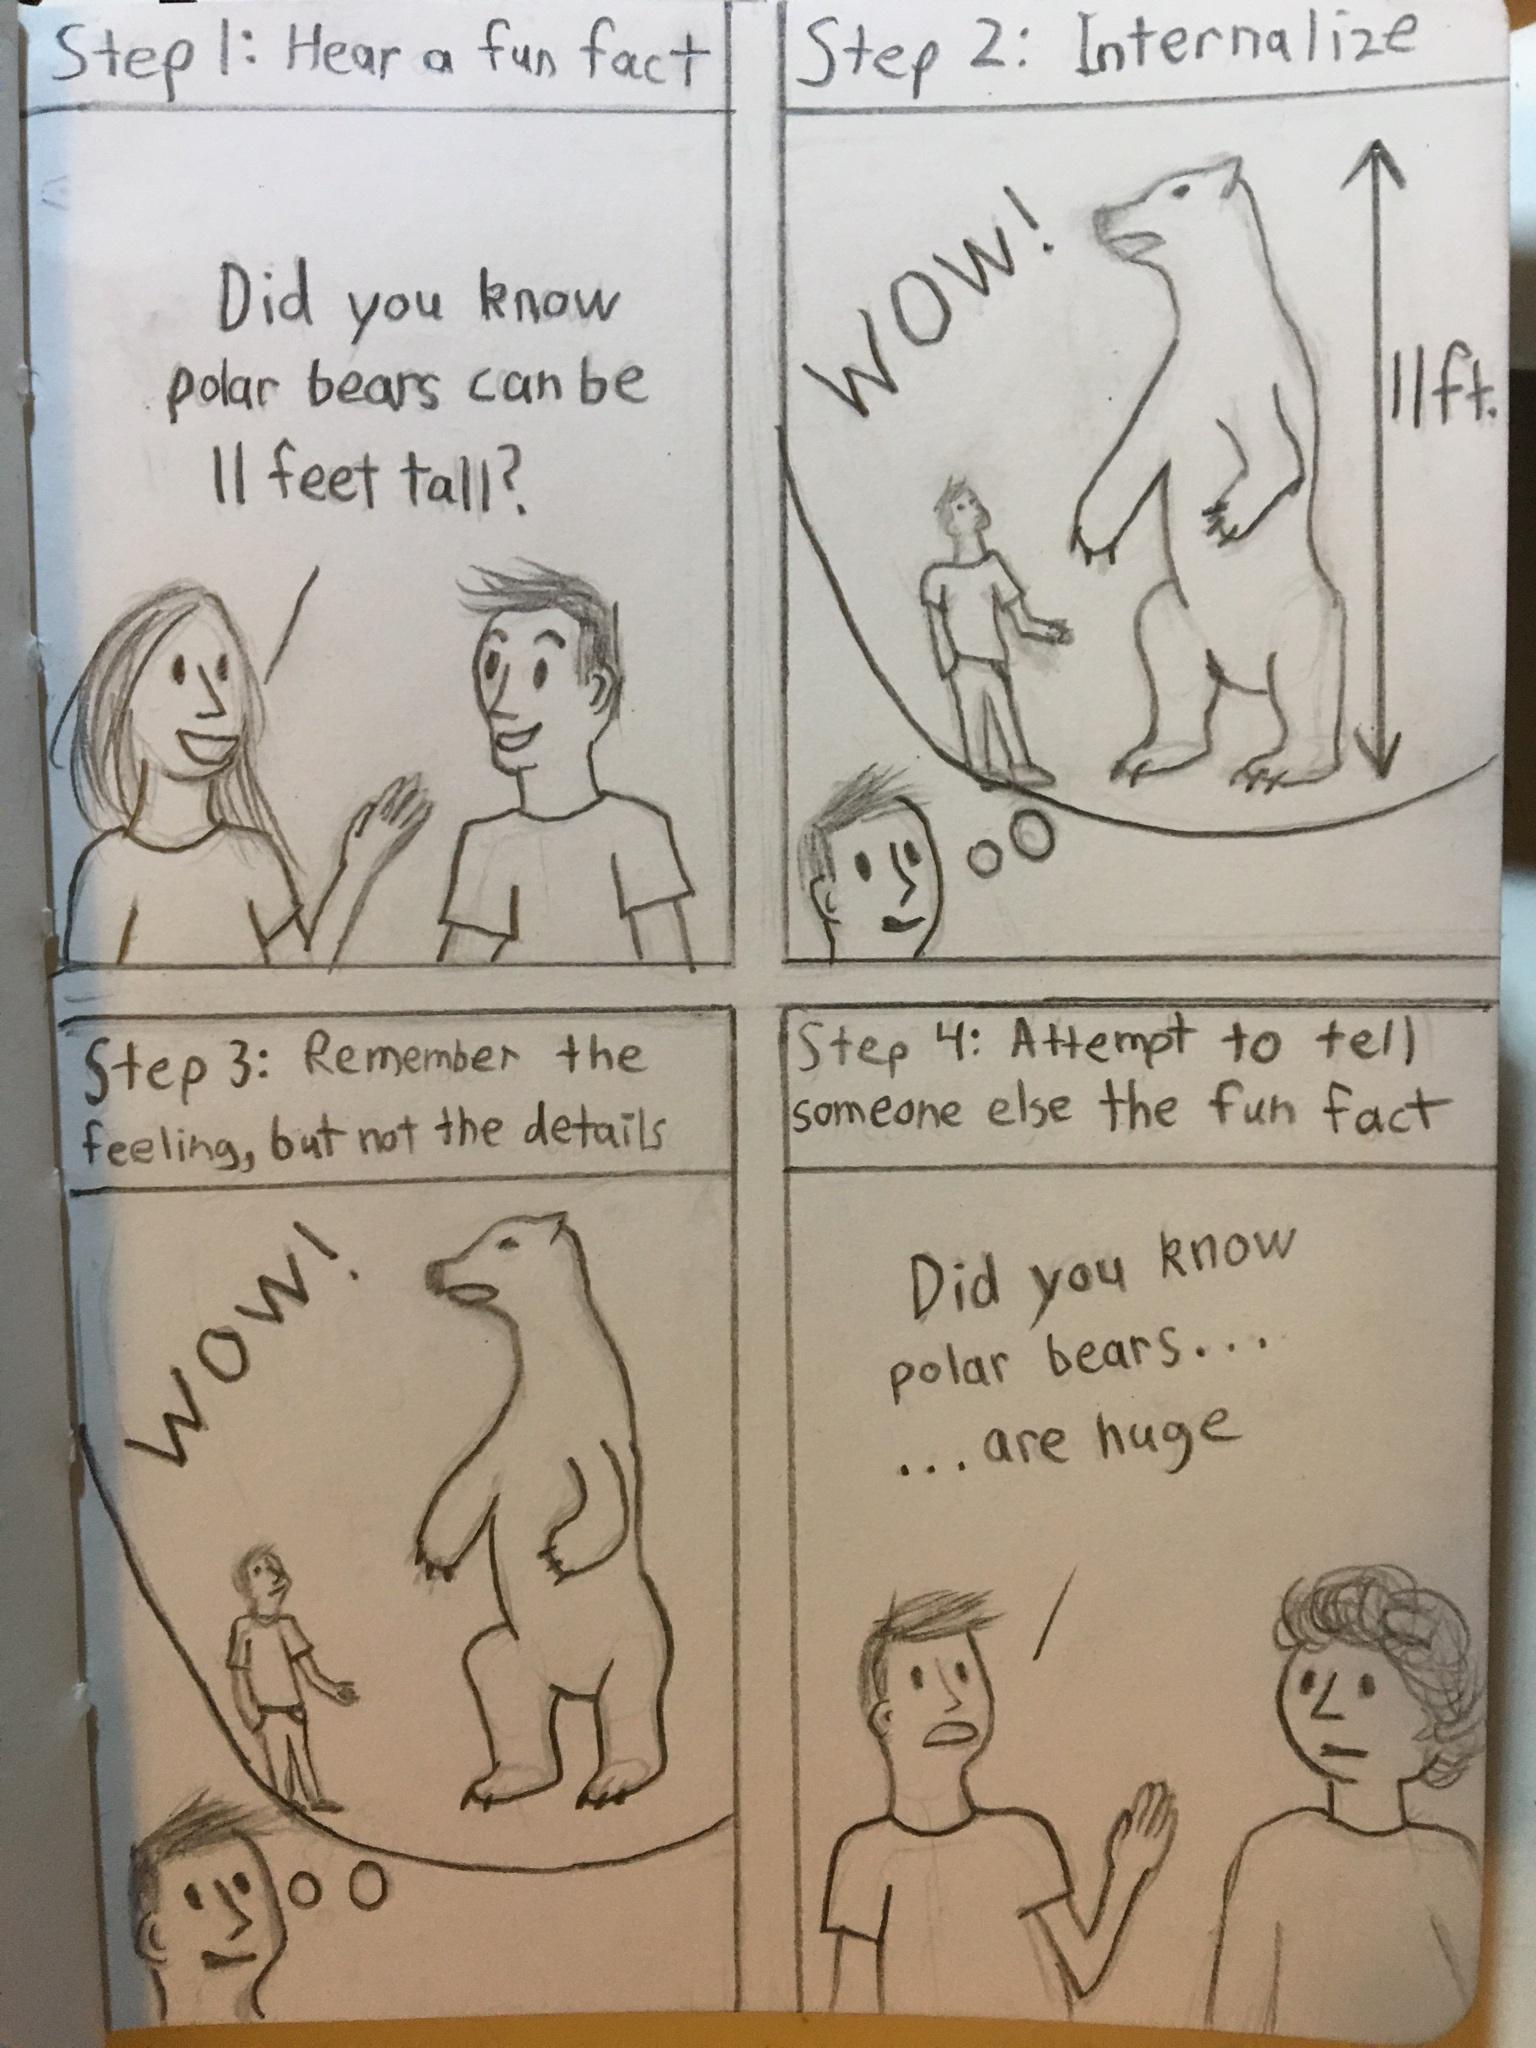 Step 1: Hear a fun fact
Did you know
polar bears can be
11 feet tall?
Step 2: Internalize
WOW!
11ft.
Step 3: Remember the
feeling, but not the details
WOW!
Step 4: Attempt to tell
someone else the fun fact
Did you know
polar bears...
...are huge